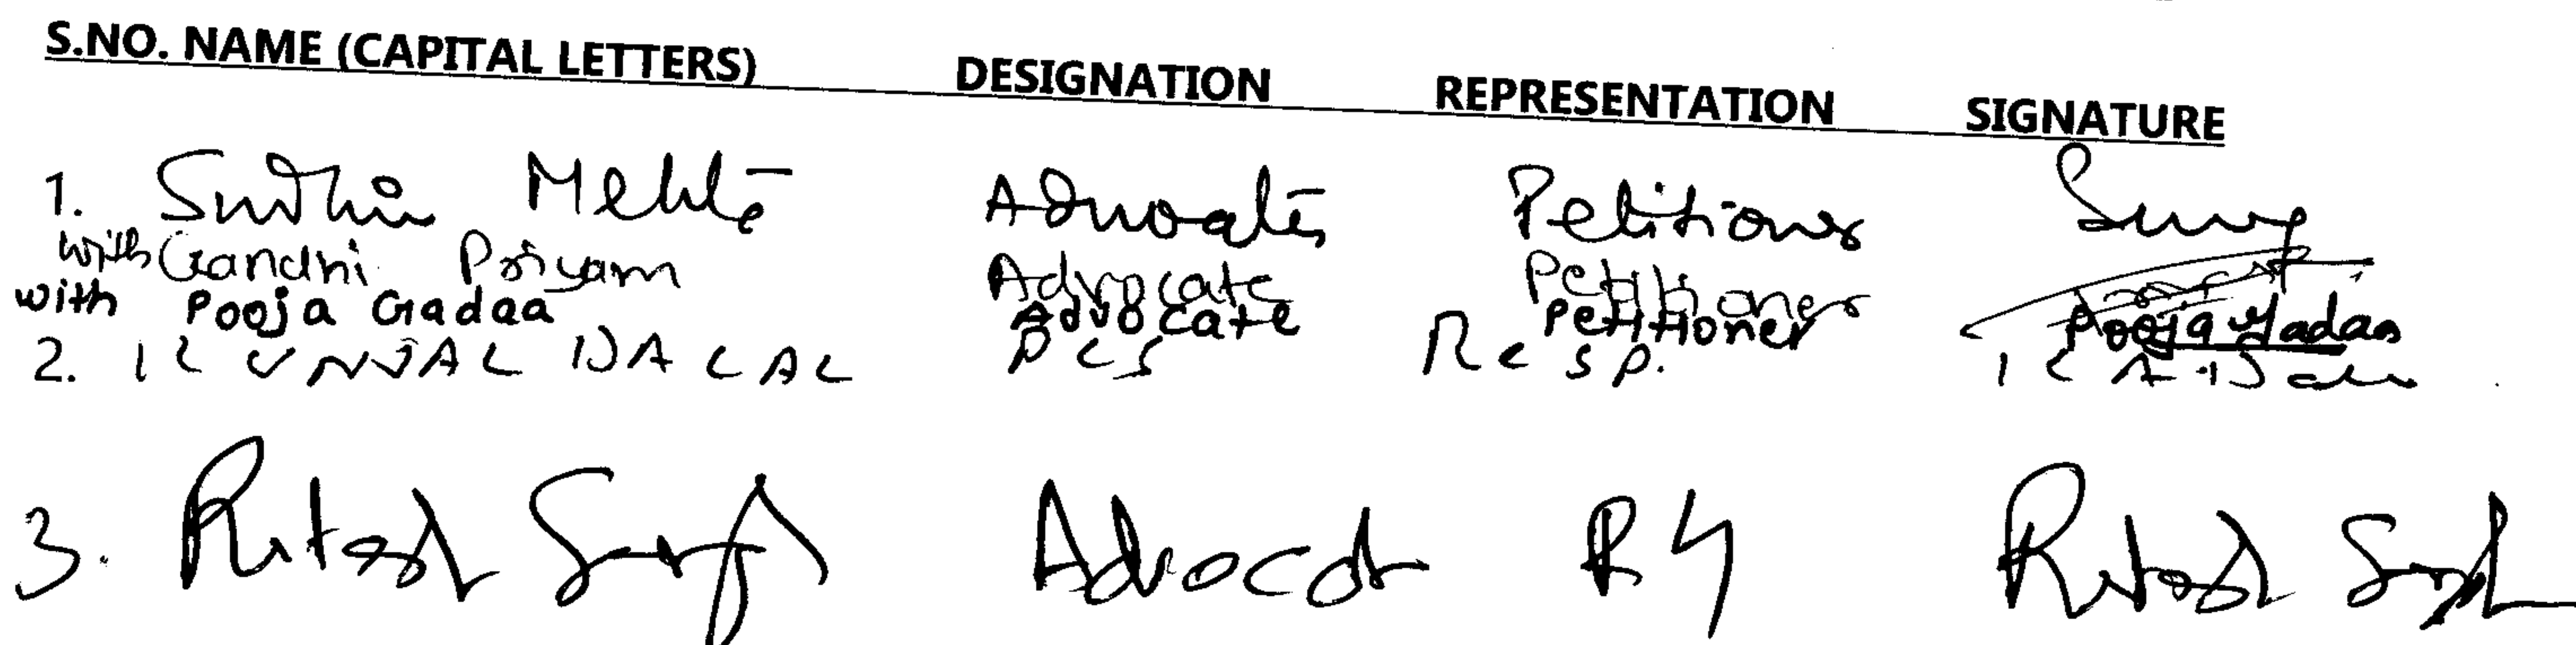 S.NO. NAME (CAPITAL LETTERS) DESIGNATION REPRESENTATION SIGNATURE
1. Sudhir Mehta Advocates Petitioners
with Gandhi Priyam Advocate Petitioner
with Pooja Gadaa Advocate Petitioner Pooja Gadaa
2. KUNJAL DALAL PCS Resp.
3. Ritesh Singh Advocate Ritesh Singh